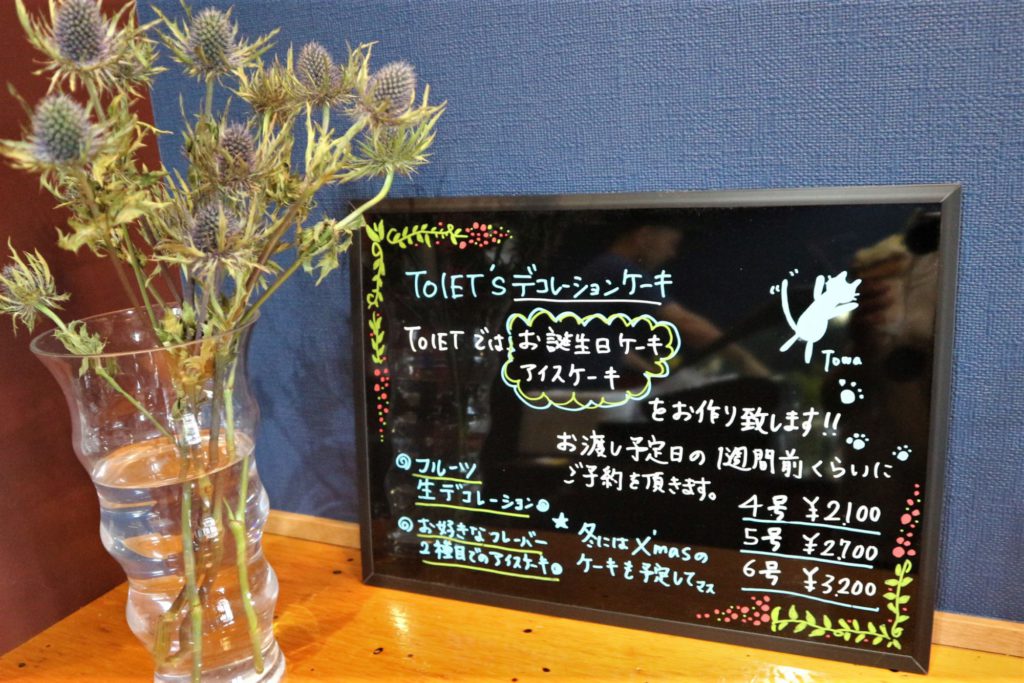 TOIET'S デコレーションケーキ
TOIET では お誕生日ケーキ
アイスケーキ
をお作り致します!!
お渡し予定日の1週間前くらいに
ご予約を頂きます。
Towa
◎フルーツ
生デコレーション
◎お好きなフレーバー
2種目でのアイスケーキ
★冬にはX'masの
ケーキを予定してマス
4号 ¥2,100
5号 ¥2,700
6号 ¥3,200